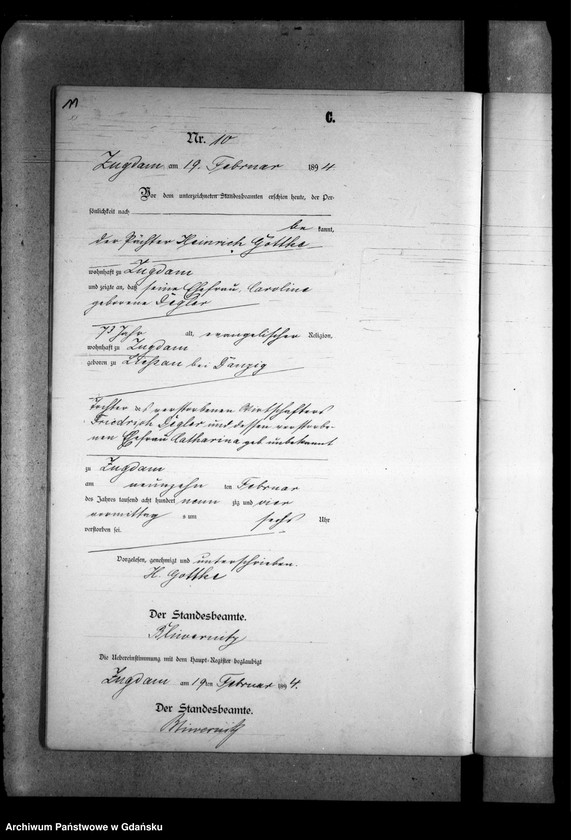 C.
Nr. 10
Zugdam am 19. Februar 1894.
Vor dem unterzeichneten Standesbeamten erschien heute, der Per-
sönlichkeit nach
be kannt,
der Pächter Heinrich Gottke
wohnhaft zu Zugdam
und zeigte an, daß seine Ehefrau, Caroline
geborene Degler
Jahr alt, evangelischer Religion,
wohnhaft zu Zugdam
geboren zu bei Danzig
Tochter des verstorbenen Wirthschafters
Friedrich Degler und dessen verstorbe-
nen Ehefrau Catharina geb. unbekannt
zu Zugdam
am neunzehn ten Februar
des Jahres tausend acht hundert neun zig und vier
vormittag s um sechs Uhr
verstorben sei.
Vorgelesen, genehmigt und unterschrieben.
H. Gottke
Der Standesbeamte.
Die Uebereinstimmung mit dem Haupt-Register beglaubigt
Zugdam am 19ten Februar 1894.
Der Standesbeamte.
Archiwum Państwowe w Gdańsku